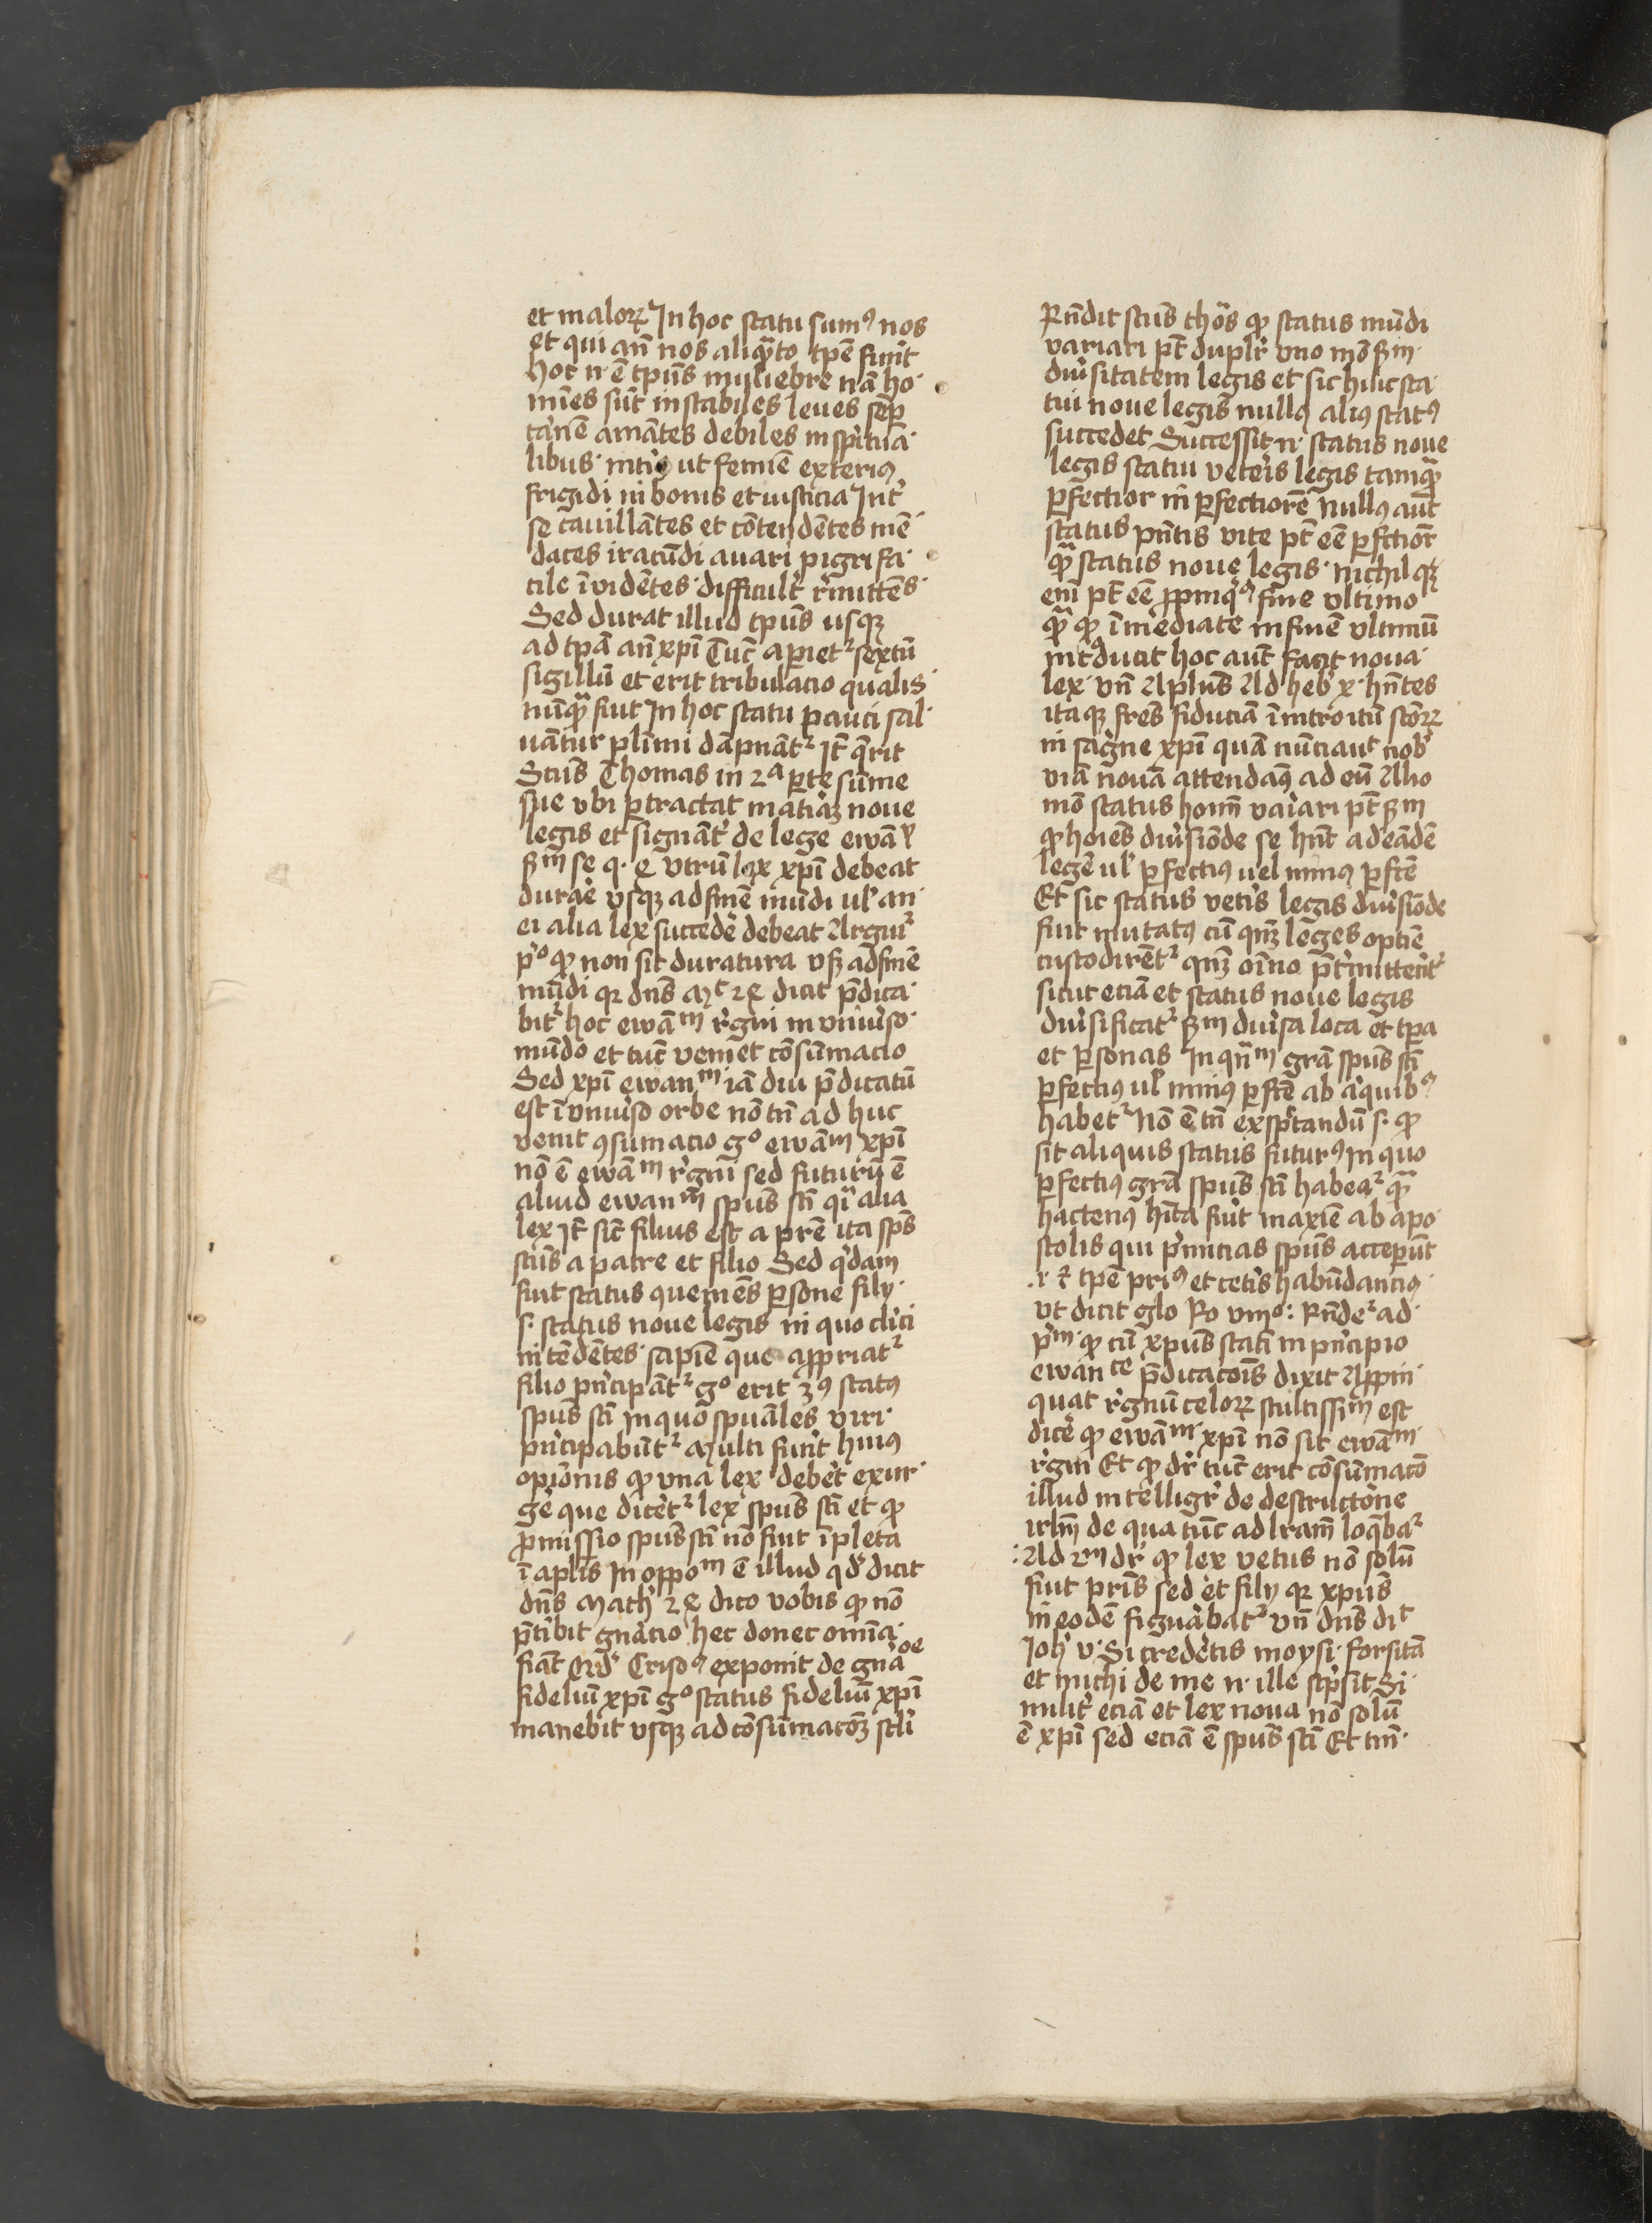 et maloꝝ In hoc statu sumꝰ nos
et qui an̄ nos aliqͣto tp̄e fuer̄t
hoc n· ē tpūs muliebre nā ho·
mi̅es su̅t instabiles leues sēp
amātes debiles in spirituā·
libus · ut femi̅e exteriꝰ
frigidi in bonis et iusticia Int̾
se cauillātes et cōtendētes mē
daces iracūdi auari pigri fa·
cile ī vidētes · difficult̾ r̾mittēs·
Sed durat illud tpūs usqꝫ
ad tpa̅ an̄xp̄i Tūc aꝑiet᷑ sextū
sigillū et erit tribulacio qualis·
nūqͣ fuit In hoc statu pauci sal·
uātur pl̄imi dāpnāt᷑ Jt̄ q̄rit
Sctūs Thomas in 2ᵃ ꝑte sūme
sue vbi ꝑtractat mat̾iaꝫ noue
legis et signāt̾ de lege ewā
ẜm se q· vtrū lex xp̄i debeat
durar̾e vsqꝫ ad finē mūdi ul̾ an·
ei alia lex succeder̾e debeat Argui᷑
p̾ᵒ ꝙ non sit duratura vsꝫ ad finē
mūdi qꝛ dn̄s Mᵗ 24 dicit p̄dica·
bit᷑ hoc ewāᵐ r̾gni in vniu̾so·
mūdo et tūc veniet cōsūmacio
Sed xp̄i ewanᵐ iā diu p̄dicatū
est ī vniu̾so orbe nō tn̄ ad huc
venit ꝯsumacio gᵒ ewāᵐ xp̄i
nō ē ewāᵐ r̾gni sed futurū ē
aliud ewanᵐ spūs sc̄i qͥ alia
lex Jt̄ sic̄ filius est a pr̄e ita sp̄s
sctūs a patre et filio Sed q̾dam
fuit status ꝯueniēs ꝑsone filij·
s· status noue legis in quo cl̾ici
intēdētes· sapi̅e que aꝓpriat᷑
filio pn̾cipāt᷑ gᵒ erit 3ꝰ statꝰ
spūs sc̄i in quo spūales viri·
pn̾cipabūt᷑ Multi fuer̄t huiꝰ
opi̅onis ꝙ vna lex deber̾et exur·
ger̾e que dicer̾et᷑ lex spūs sc̄i et ꝙ
ꝓmissio spūs sc̄i nō fuit īpleta
ī apl̄is In oppoᵐ ē illud qd̾ dicit
dn̄s Math̾ 24 dico vobis ꝙ nō
p̄t̾ibit gn̾acio hec donec omīa·
fiāt Qd̾ Crisoꝰ exponit de gn̾aᵒᵉ
fidelīū xp̄i gᵒ status fideliū xp̄i
manebit vsqꝫ ad cōsūmacōꝫ scl̾i
Rn̄dit sctūs thōs ꝙ status mūdi
variari pt̄ dupl̾r vno mō ẜm·
diu̾sitatem legis et sic huic sta·
tui noue legis nullꝰ aliꝰ statꝰ
succedet Successit n· status noue
legis statui veter̾is legis tamqͣ
ꝑfectior inꝑfectiorē Nullꝰ aut̄
status pn̄tis vite pt̄ eē ꝑfc̄tior̄
qͣ status noue legis · Nichil
eni̅ pt̄ eē ꝓpinqͥꝰ fine vltimo
qͣ ꝙ īmediate in finē vltimū
int̾ducit hoc aut̄ facit noua·
lex· vn̄ Aplūs Ad heb̾ x· hn̄tes
itaqꝫ fr̄es fiduciā ī introitū scōꝝ
in sāgne xp̄i quā nūciauit nob̾
viā nouā attendaꝰ ad eū Alio
mō status homī vari̾ari pt̄ ẜm
ꝙ hoīes diu̾simōde se hn̄t ad eādē
legē ul̾ ꝑfectiꝰ uel minꝰ ꝑfc̄e
Et sic status vet̾is legis diu̾simōde
fuit mutatꝰ cū qn̄ꝫ leges optīe
custodirēt᷑ qn̄ꝫ oīno p̄t̾mitter̾et᷑
sicut eciā et status noue legis
diu̾sificat᷑ ẜm diu̾sa loca et tpa
et ꝑsonas Inqn̄ᵐ gr̄a spūs sc̄i
ꝑfectiꝰ ul̾ minꝰ ꝑfc̄e ab aͥquibꝰ
habet᷑ Nō ē tn̄ exsp̾ctandū s· ꝙ
sit aliquis status futurꝰ in quo
ꝑfectiꝰ gr̄a spūs sc̄i habea᷑ qͣ
hactenꝰ hīta fuit maxīe ab apo·
stolis qui p̾micias spūs acceꝑūt
·i· ⁊ tp̄e priꝰ et cet̾is habūdanciꝰ·
vt dicit glo Ro viijᵒ: Rn̄de᷑ ad·
p̾ᵐ· ꝙ cū xpūs stati̅ in pn̾cipio
ewanᶜᵉ p̄dicacōis dixit Aꝓpin·
quat r̾gnū celoꝝ stultissiᵐ est
dicer̾e ꝙ ewāᵐ xp̄i nō sit ewāᵐ·
r̾gni Et ꝙ dr̄ tūc erit cōsūmacō
illud intelligr̾ de destructōne
irlm̄ de qua tūc ad lr̄am loq̄ba᷑
:Ad 2ᵐ dr̄ ꝙ lex vetus nō solū
fuit pr̄is sed et filij qꝛ xpūs
in eodē figurabat᷑ vn̄ dn̄s diᵗ
Joh̾ v· Si creder̾etis moysi· forsitā
et michi de me n· ille sc̾psit Si·
milit̾ eciā et lex noua nō solū
ē xp̄i sed eciā ē spūs sc̄i Et tm̄·